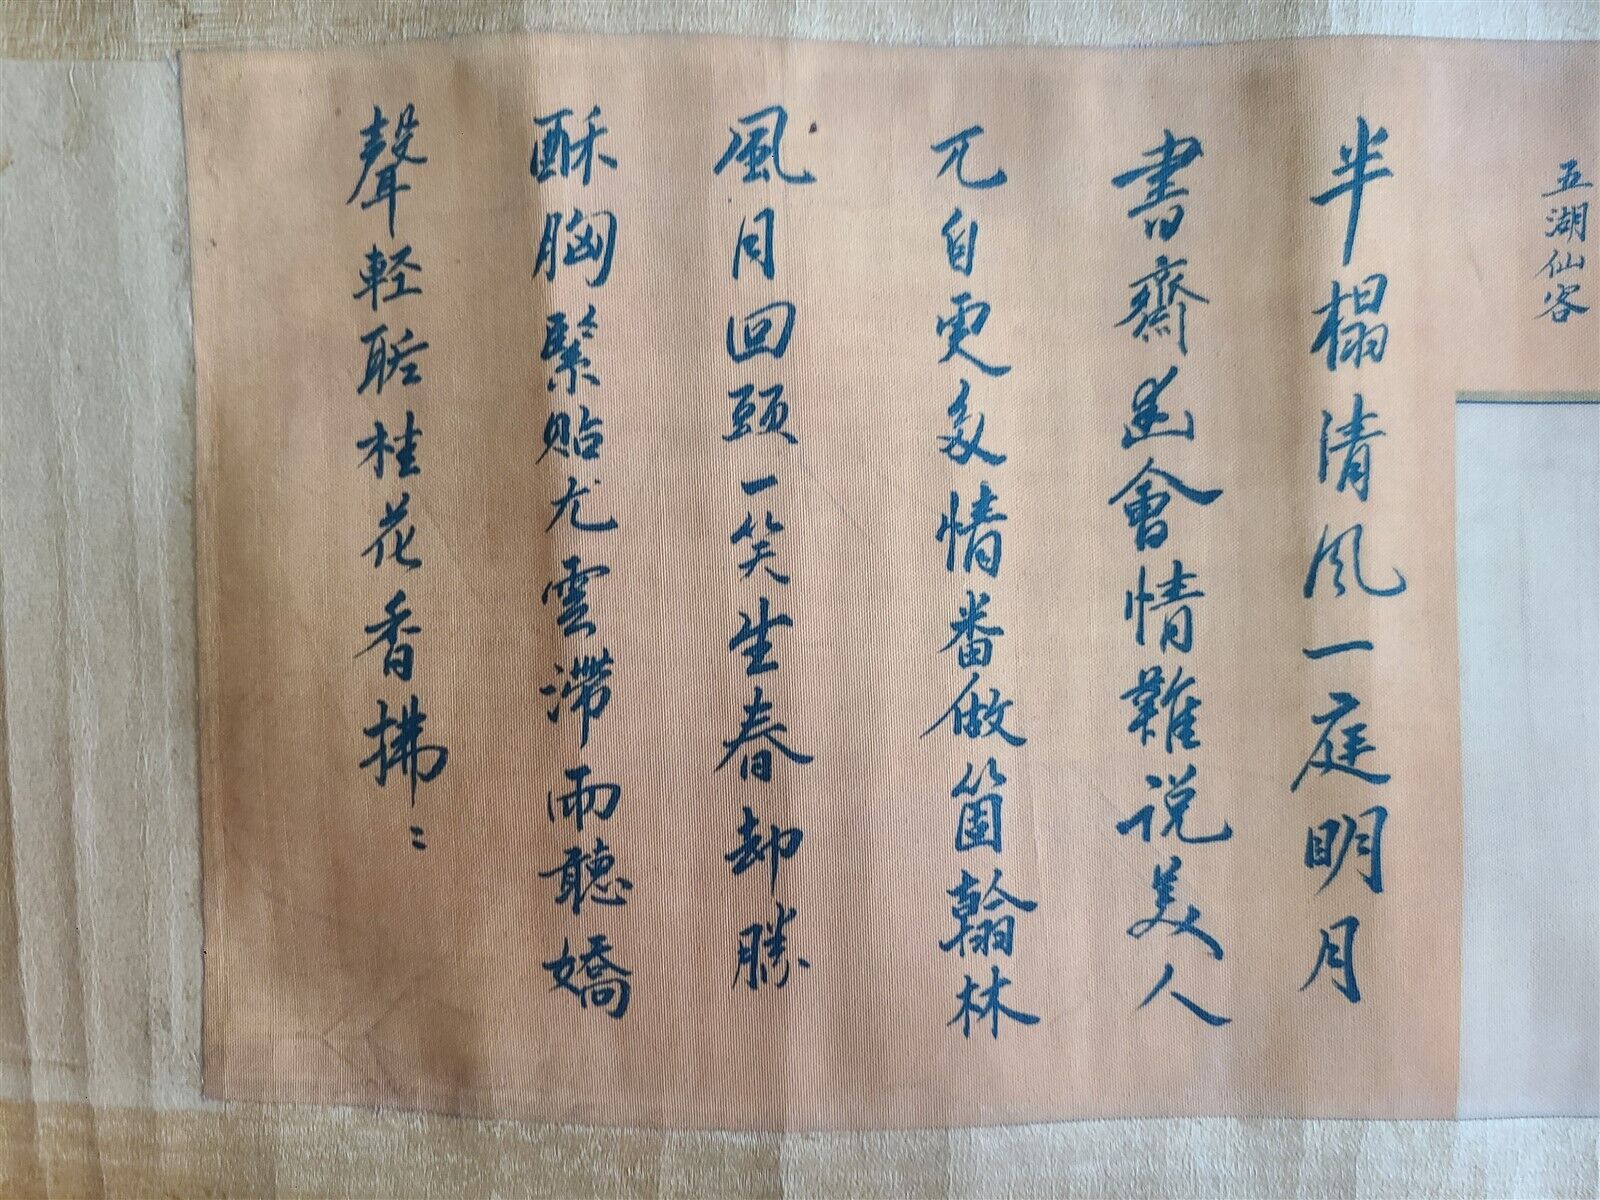 五湖仙客
半榻清風一庭明月
書齋幽會情難说美人
兀自更多情番做箇翰林
風月回頭一笑生春却勝
酥胸緊貼尤雲滯雨聽嬌
聲輕聒桂花香拂〻